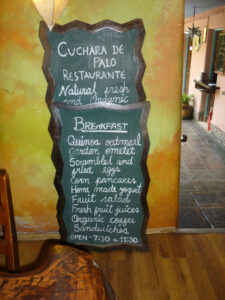 CUCHARA DE
PALO
RESTAURANTE
Natural fresh
and Organic
BREAKFAST
Quinoa oatmeal
Garden omelet
Scrambled and
fried eggs
Corn pancakes
Home made yogurt
Fruit salad
Fresh fruit juices
Organic coffee
Sandwiches
OPEN - 7:30 a 11:30